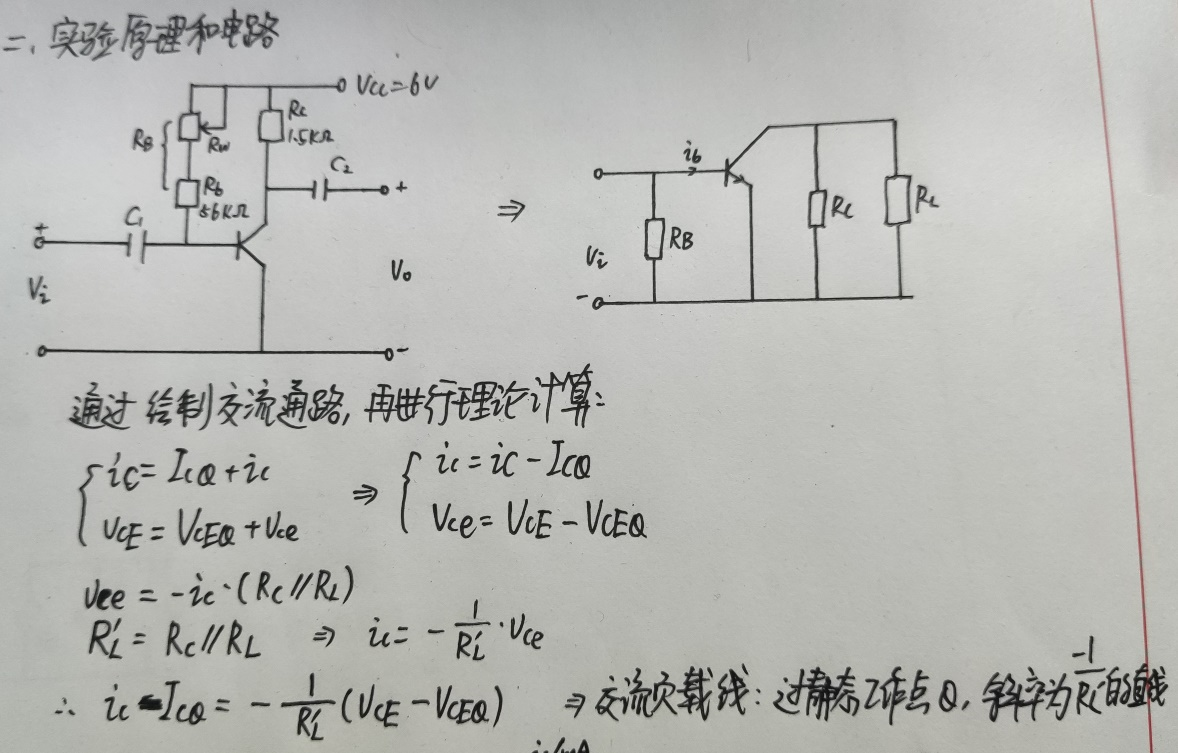 二、实验原理和电路
Vcc=6V
RB
RW
Rc
1.5KΩ
C2
+
Rb
56KΩ
C1
+
Vi
Vo
-
⇒
ib
RB
Vi
-
RC
RL
通过绘制交流通路,再进行理论计算:
{ iC = ICQ + ic ⇒ { ic = iC - ICQ
vCE = VCEQ + vce vce = vCE - VCEQ
vce = -ic·(Rc // RL)
R'L = Rc // RL ⇒ ic = - 1/R'L · vce
∴ ic - ICQ = - 1/R'L (vCE - VCEQ) ⇒ 交流负载线:过静态工作点Q,斜率为 -1/R'L 的直线